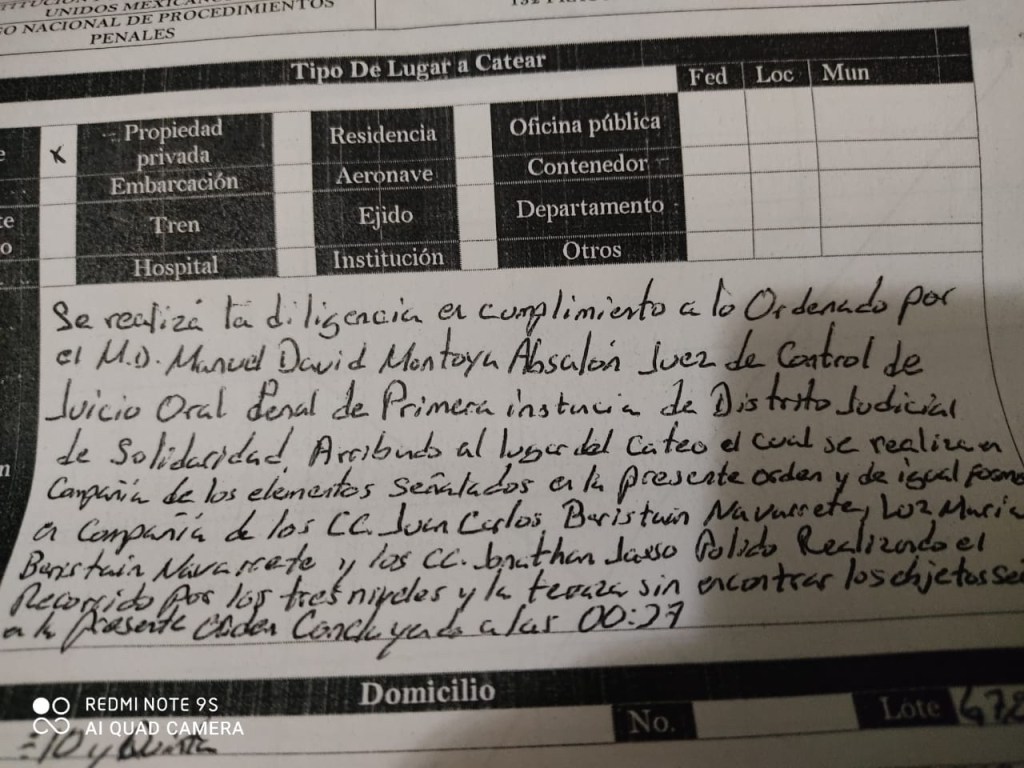 UNIDOS MEXICAN
O NACIONAL DE PROCEDIMIENTOS
PENALES
Tipo De Lugar a Catear
Fed Loc Mun
x Propiedad privada Residencia Oficina pública
Embarcación Aeronave Contenedor
Tren Ejido Departamento
Hospital Institución Otros
Se realizá la diligencia en cumplimiento a lo Ordenado por
el M.D. Manuel David Montoya Absalón Juez de Control de
Juicio Oral Penal de Primera instancia de Distrito Judicial
de Solidaridad, Arribando al lugar del Cateo el cual se realiza en
Compañia de los elementos señalados en la presente orden y de igual forma
en Compañia de los CC. Juan Carlos Beristain Navarrete, Luz Maria
Beristain Navarrete y los CC. Jonathan Jasso Polido Realizando el
Recorrido por los tres niveles y la terraza sin encontrar los objetos señ
en la presente Orden Concluyendo a las 00:27
Domicilio
No. Lote 672
10 y
REDMI NOTE 9S
AI QUAD CAMERA